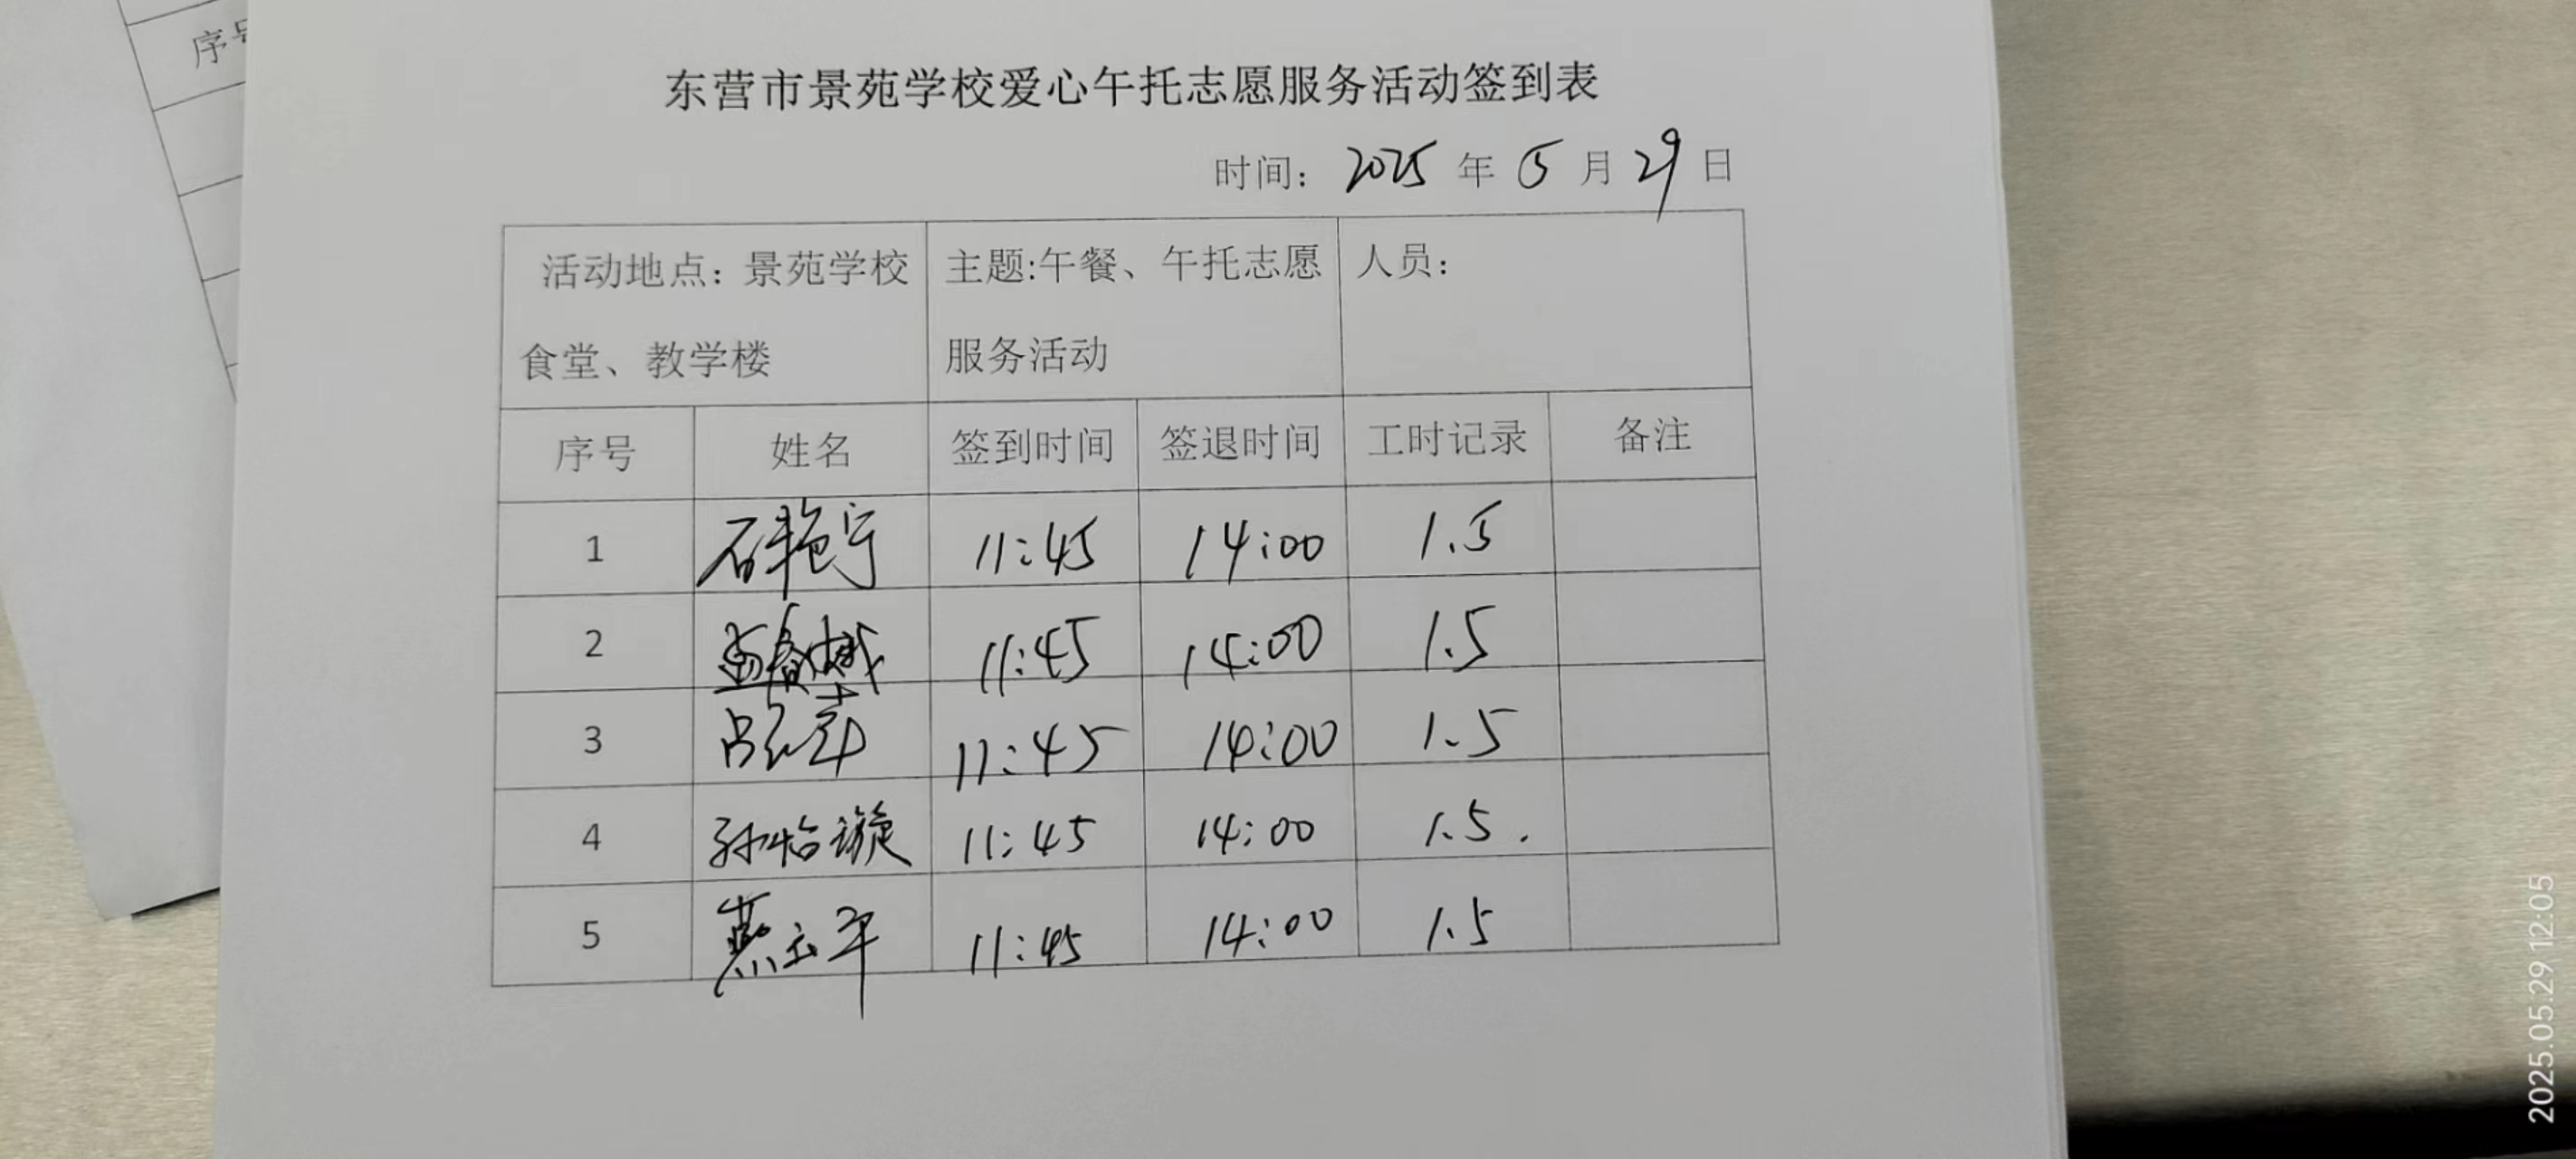 序号
东营市景苑学校爱心午托志愿服务活动签到表
时间： 2025 年 5 月 29 日
活动地点：景苑学校食堂、教学楼 主题:午餐、午托志愿服务活动 人员：
序号 姓名 签到时间 签退时间 工时记录 备注
1 石艳宁 11:45 14:00 1.5
2 11:45 14:00 1.5
3 11:45 14:00 1.5
4 孙怡璇 11:45 14:00 1.5.
5 燕玉平 11:45 14:00 1.5
2025.05.29 12:05